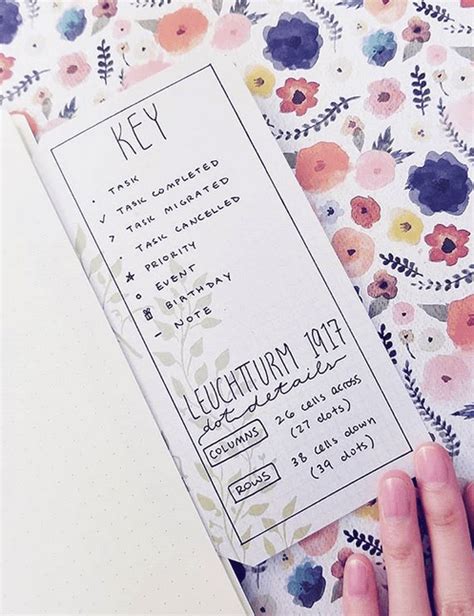 KEY
• TASK
✓ TASK COMPLETED
> TASK MIGRATED
• TASK CANCELLED
★ PRIORITY
o EVENT
BIRTHDAY
– NOTE
LEUCHTTURM 1917
dot details
COLUMNS 26 cells across
(27 dots)
ROWS 38 cells down
(39 dots)